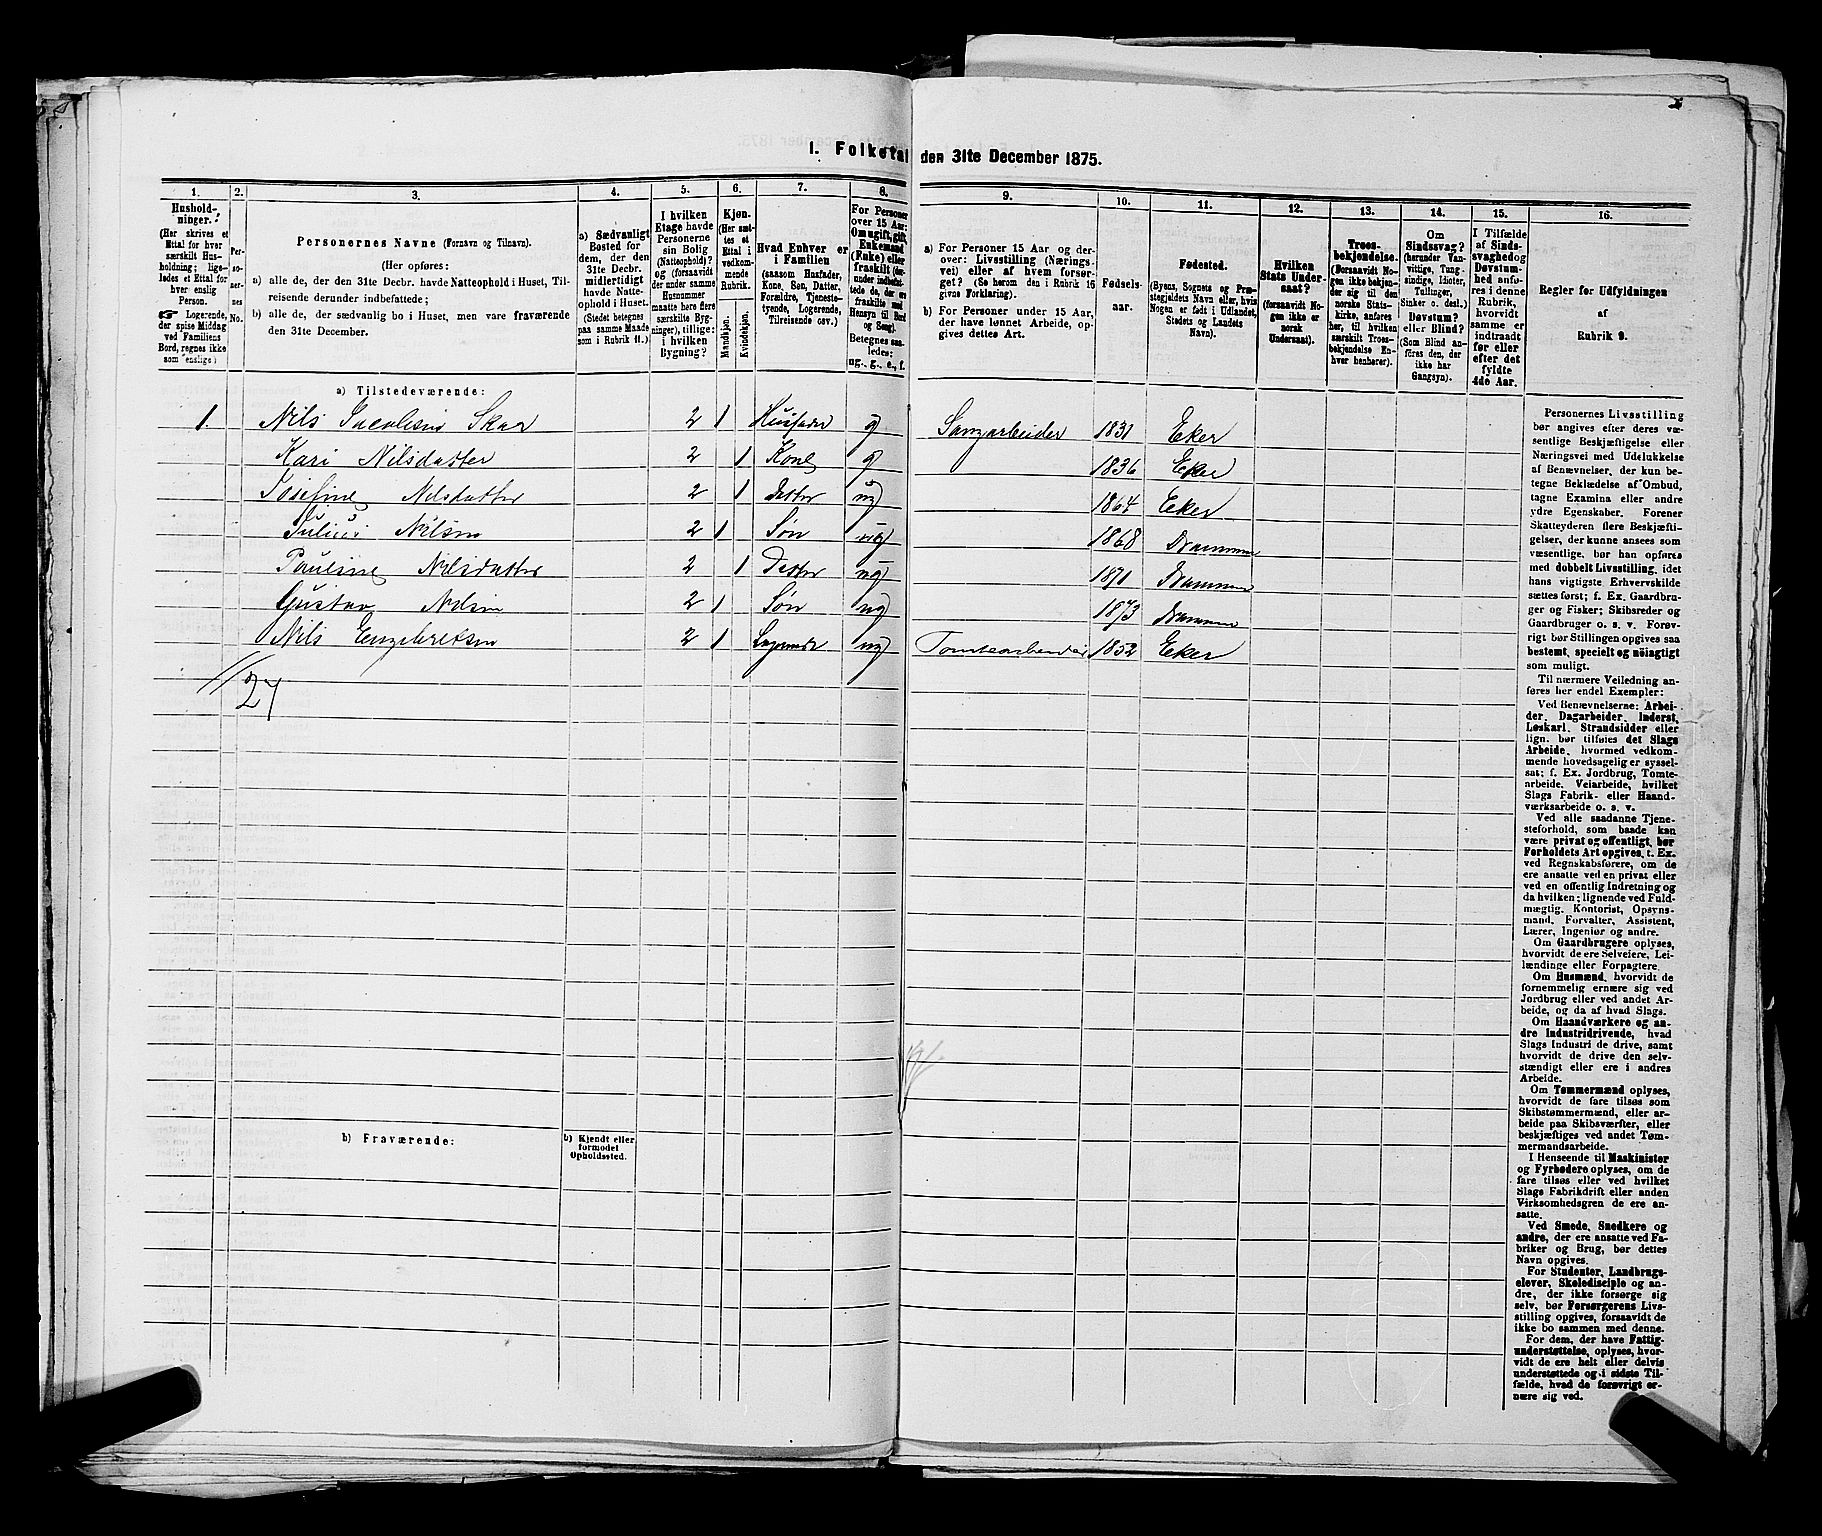 I. Folketal den 31te December 1875.
1.
Hushold-
ninger.
(Her skrives et
Ettal for hver
særskilt Hus-
holdning; lige-
ledes et Ettal for
hver enslig
Person.
☛ Logerende,
der spise Middag
ved Familiens
Bord, regnes ikke
som enslige.)
2.
Per-
so-
ner-
nes
No.
3.
Personernes Navne (Fornavn og Tilnavn).
(Her opføres:
a) alle de, der den 31te Decbr. havde Natteophold i Huset, Til-
reisende derunder indbefattede;
b) alle de, der sædvanlig bo i Huset, men vare fraværende
den 31te December.
4.
a) Sædvanligt
Bosted for
dem, der den
31te Decbr.
midlertidigt
havde Natte-
ophold i Huset.
(Stedet betegnes
paa samme Maade
som i Rubrik 11.)
5.
I hvilken
Etage havde
Personerne
sin Bolig
(Natteophold)?
og (forsaavidt
der under samme
Husnummer
maatte høre flere
særskilte Byg-
ninger), tillige:
i hvilken
Bygning?
6.
Kjøn.
(Her sæt-
tes et
Ettal i
vedkom-
mende
Rubrik.
Mandkjøn.
Kvindekjøn.
7.
Hvad Enhver er
i Familien
(saasom Husfader,
Kone, Søn, Datter,
Forældre, Tjeneste-
tyende, Logerende,
Tilreisende osv.).
8.
For Personer
over 15 Aar:
Om ugift, gift,
Enkemand
(Enke) eller
fraskilt (der-
under indbefat-
tede de, der ere
fraskilte med
Hensyn til Bord
og Seng).
Betegnes saa-
ledes:
ug., g., e., f.
9.
a) For Personer 15 Aar og der-
over: Livsstilling (Nærings-
vei) eller af hvem forsør-
get? (Se herom den i Rubrik 16
givne Forklaring).
b) For Personer under 15 Aar,
der have lønnet Arbeide, op-
gives dettes Art.
10.
Fødsels-
aar.
11.
Fødested.
(Byens, Sognets og Præ-
stegjeldets Navn eller, hvis
Nogen er født i Udlandet,
Stedets og Landets
Navn).
12.
Hvilken
Stats Under-
saat?
(forsaavidt No-
gen ikke er
norsk
Undersaat).
13.
Troes-
bekjendelse.
(Forsaavidt No-
gen ikke bekjen-
der sig til den
norske Stats-
kirke, anføres
her, til hvilken
særskilt Troes-
bekjendelse En-
hver henhører).
14.
Om
Sindssvag?
(herunder Van-
vittige, Tung-
sindige, Idioter,
Tullinger,
Sinker o. desl.)
Døvstum?
eller Blind?
(Som Blind an-
føres den, der
ikke har
Gangsyn).
15.
I Tilfælde
af Sinds-
svaghed og
Døvstum-
hed anfø-
res i denne
Rubrik,
hvorvidt
samme er
indtraadt
før eller
efter det
fyldte
4de Aar.
16.
Regler for Udfyldningen
af
Rubrik 9.
a) Tilstedeværende:
1 Nils Jacobsen Skar 2 1 Husfader g Saugarbeider 1831 Eker
Kari Nilsdatter 2 1 Kone g 1836 Eker
Josefine Nilsdatter 2 1 Datter ug 1864 Eker
Julius Nilsen 2 1 Søn ug 1868 Drammen
Pauline Nilsdatter 2 1 Datter ug 1871 Drammen
Gustav Nilsen 2 1 Søn ug 1873 Drammen
Nils Engebretsen 2 1 Logerende ug Tomtearbeider 1852 Eker
27
b) Fraværende:
b) Kjendt eller
formodet
Opholdssted.
Personernes Livsstilling
bør angives efter deres væ-
sentlige Beskjæftigelse eller
Næringsvei med Udelukkelse
af Benævnelser, der kun be-
tegne Beklædelse af Ombud,
tagne Examina eller andre
ydre Egenskaber. Forener
Skatteyderen flere Beskjæfti-
gelser, der kunne ansees som
væsentlige, bør han opføres
med dobbelt Livsstilling, idet
hans vigtigste Erhvervskilde
sættes først; f. Ex. Gaardbru-
ger og Fisker; Skibsreder og
Gaardbruger o. s. v. Forøv-
rigt bør Stillingen opgives saa
bestemt, specielt og nøiagtigt
som muligt.
Til nærmere Veiledning an-
føres her endel Exempler:
Ved Benævnelserne: Arbei-
der, Dagarbeider, Inderst,
Løskarl, Strandsidder eller
lign. bør tilføies det Slags
Arbeide, hvormed vedkom-
mende hovedsagelig er syssel-
sat; f. Ex. Jordbrug, Tomte-
arbeide, Veiarbeide, hvilket
Slags Fabrik- eller Haand-
værksarbeide o. s. v.
Ved alle saadanne Tjene-
steforhold, som baade kan
være privat og offentligt, bør
Forholdets Art opgives, f. Ex.
ved Regnskabsførere, om de
ere ansatte ved en privat eller
ved en offentlig Indretning og
da hvilken; lignende ved Fuld-
mægtig, Kontorist, Opsyns-
mand, Forvalter, Assistent,
Lærer, Ingeniør og andre.
Om Gaardbrugere oplyses,
hvorvidt de ere Selveiere, Lei-
lændinge eller Forpagtere.
Om Husmænd, hvorvidt de
fornemmelig ernære sig ved
Jordbrug eller ved andet Ar-
beide, og da af hvad Slags.
Om Haandværkere og an-
dre Industridrivende, hvad
Slags Industri de drive, samt
hvorvidt de drive den selv-
stændigt eller ere i andres
Arbeide.
Om Tømmermænd oplyses,
hvorvidt de fare tilsøs som
Skibstømmermænd, eller ar-
beide paa Skibsværfter, eller
beskjæftiges ved andet Tøm-
mermandsarbeide.
I Henseende til Maskinister
og Fyrbødere oplyses, om de
fare tilsøs eller ved hvilket
Slags Fabrikdrift eller anden
Virksomhedsgren de ere an-
satte.
Ved Smede, Snedkere og
andre, der ere ansatte ved Fa-
briker og Brug, bør dettes
Navn opgives.
For Studenter, Landbrugs-
elever, Skoledisciple og an-
dre, der ikke forsørge sig
selv, bør Forsørgerens Livs-
stilling opgives, forsaavidt de
ikke bo sammen med denne.
For dem, der have Fattig-
understøttelse, oplyses, hvor-
vidt de ere helt eller delvis
understøttede og i sidste Til-
fælde, hvad de forøvrigt er-
nære sig ved.